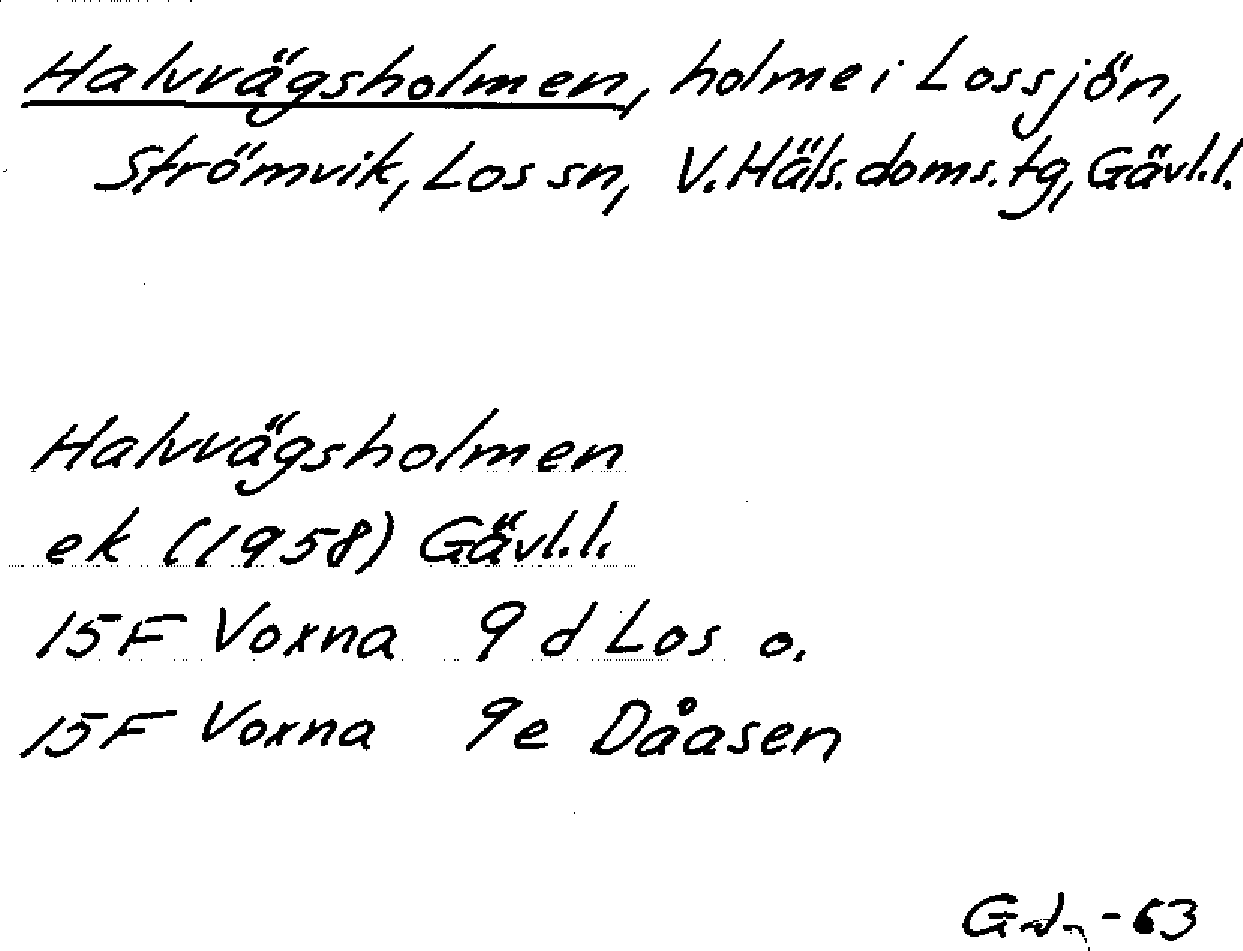 Halvvägsholmen, holme i Lossjön,
Strömvik, Los sn, V. Häls. doms. tg, Gävl. l.
Halvvägsholmen
ek (1958) Gävl. l.
15F Voxna 9 d Los o.
15F Voxna 9e Dåasen
-63